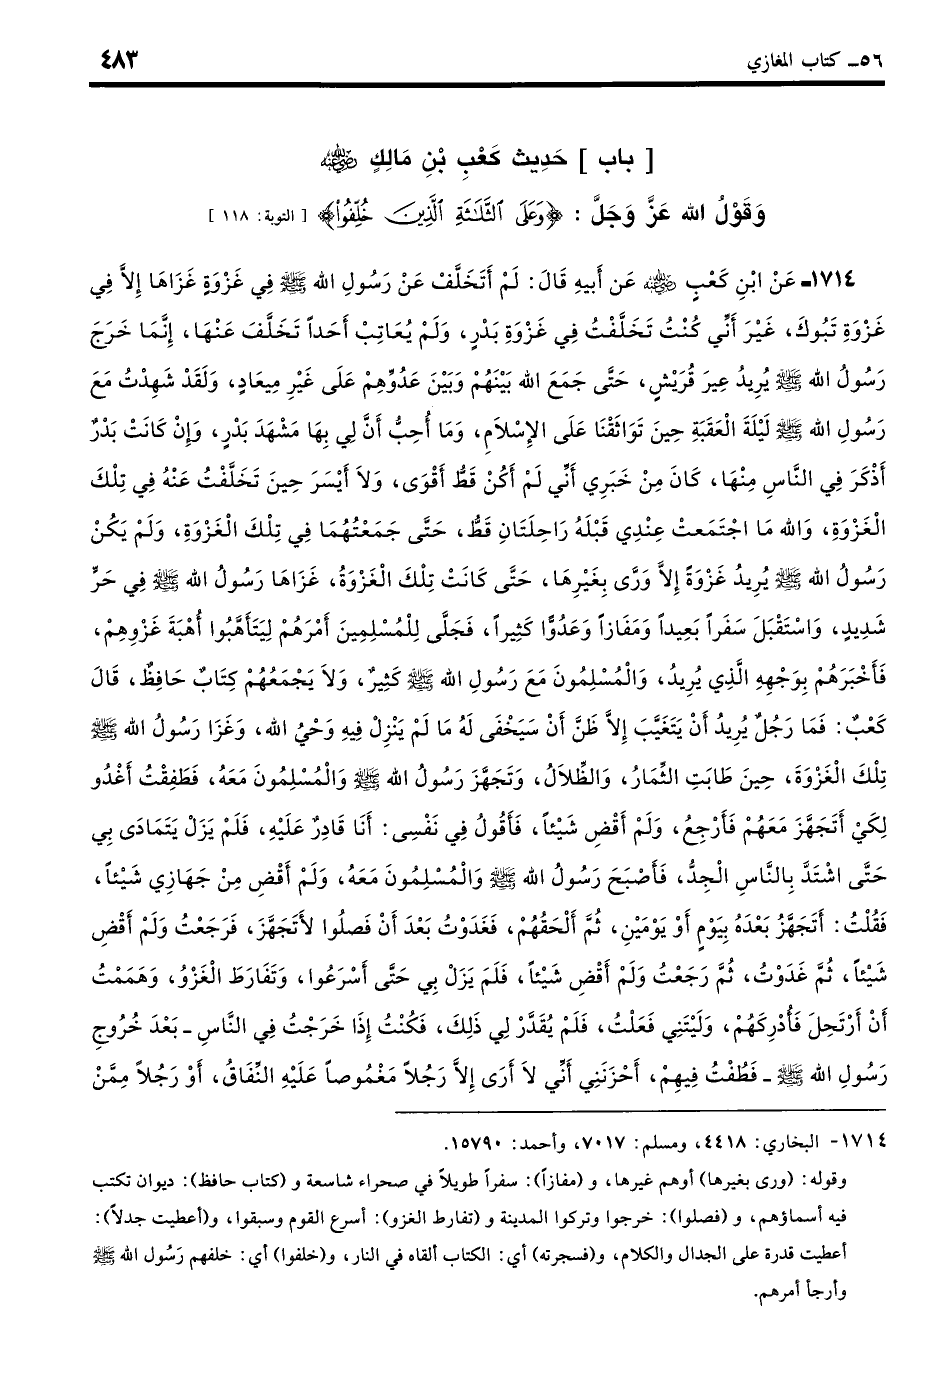 ٥٦ـ كتاب المغازي ٤٨٣
[ باب ] حَدِيث كَعْبِ بْنِ مَالِكٍ رضي الله عنه
وَقَوْلُ الله عَزَّ وَجَلَّ : ﴿وَعَلَى ٱلثَّلَـٰثَةِ ٱلَّذِينَ خُلِّفُوا۟﴾ [ التوبة: ١١٨ ]
١٧١٤ـ عَنْ ابْنِ كَعْبٍ رضي الله عنه عَن أَبيهِ قَالَ: لَمْ أَتَخَلَّف عَنْ رَسُولِ الله ﷺ فِي غَزْوَةٍ غَزَاهَا إِلاَّ فِي
غَزْوَةِ تَبُوكَ، غَيْرَ أَنِّي كُنْتُ تَخَلَّفْتُ فِي غَزْوَةِ بَدْرٍ، وَلَمْ يُعَاتِبْ أَحَداً تَخَلَّفَ عَنْهَا، إِنَّمَا خَرَجَ
رَسُولُ الله ﷺ يُرِيدُ عِيرَ قُرَيْشٍ، حَتَّى جَمَعَ الله بَيْنَهُمْ وَبَيْنَ عَدُوِّهِمْ عَلَى غَيْرِ مِيعَادٍ، وَلَقَدْ شَهِدْتُ مَعَ
رَسُولِ الله ﷺ لَيْلَةَ الْعَقَبَةِ حِينَ تَوَاثَقْنَا عَلَى الإِسْلاَمِ، وَمَا أُحِبُّ أَنَّ لِي بِهَا مَشْهَدَ بَدْرٍ، وَإِنْ كَانَتْ بَدْرٌ
أَذْكَرَ فِي النَّاسِ مِنْهَا، كَانَ مِنْ خَبَرِي أَنِّي لَمْ أَكُنْ قَطُّ أَقْوَى، وَلاَ أَيْسَرَ حِينَ تَخَلَّفْتُ عَنْهُ فِي تِلْكَ
الْغَزْوَةِ، وَالله مَا اجْتَمَعتْ عِنْدِي قَبْلَهُ رَاحِلَتَانِ قَطُّ، حَتَّى جَمَعْتُهُمَا فِي تِلْكَ الْغَزْوَةِ، وَلَمْ يَكُنْ
رَسُولُ الله ﷺ يُرِيدُ غَزْوَةً إِلاَّ وَرَّى بِغَيْرِهَا، حَتَّى كَانَتْ تِلْكَ الْغَزْوَةُ، غَزَاهَا رَسُولُ الله ﷺ فِي حَرٍّ
شَدِيدٍ، وَاسْتَقْبَلَ سَفَراً بَعِيداً وَمَفَازاً وَعَدُوًّا كَثِيراً، فَجَلَّى لِلْمُسْلِمِينَ أَمْرَهُمْ لِيَتَأَهَّبُوا أُهْبَةَ غَزْوِهِمْ،
فَأَخْبَرَهُمْ بِوَجْهِهِ الَّذِي يُرِيدُ، وَالْمُسْلِمُونَ مَعَ رَسُولِ الله ﷺ كَثِيرٌ، وَلاَ يَجْمَعُهُمْ كِتَابٌ حَافِظٌ، قَالَ
كَعْبٌ: فَمَا رَجُلٌ يُرِيدُ أَنْ يَتَغَيَّبَ إِلاَّ ظَنَّ أَنْ سَيَخْفَى لَهُ مَا لَمْ يَنْزِلْ فِيهِ وَحْيُ الله، وَغَزَا رَسُولُ الله ﷺ
تِلْكَ الْغَزْوَةَ، حِينَ طَابَتِ الثِّمَارُ، وَالظِّلاَلُ، وَتَجَهَّزَ رَسُولُ الله ﷺ وَالْمُسْلِمُونَ مَعَهُ، فَطَفِقْتُ أَغْدُو
لِكَيْ أَتَجَهَّزَ مَعَهُمْ فَأَرْجِعُ، وَلَمْ أَقْضِ شَيْئاً، فَأَقُولُ فِي نَفْسِى: أَنَا قَادِرٌ عَلَيْهِ، فَلَمْ يَزَلْ يَتَمَادَى بِي
حَتَّى اشْتَدَّ بِالنَّاسِ الْجِدُّ، فَأَصْبَحَ رَسُولُ الله ﷺ وَالْمُسْلِمُونَ مَعَهُ، وَلَمْ أَقْضِ مِنْ جَهَازِي شَيْئاً،
فَقُلْتُ: أَتَجَهَّزُ بَعْدَهُ بِيَوْمٍ أَوْ يَوْمَيْنِ، ثُمَّ أَلْحَقُهُمْ، فَغَدَوْتُ بَعْدَ أَنْ فَصلُوا لأَتَجَهَّزَ، فَرَجَعْتُ وَلَمْ أَقْضِ
شَيْئاً، ثُمَّ غَدَوْتُ، ثُمَّ رَجَعْتُ وَلَمْ أَقْضِ شَيْئاً، فَلَمَ يَزَلْ بِي حَتَّى أَسْرَعُوا، وَتَفَارَطَ الْغَزْوُ، وَهَمَمْتُ
أَنْ أَرْتَحِلَ فَأُدْرِكَهُمْ، وَلَيْتَنِي فَعَلْتُ، فَلَمْ يُقَدَّرْ لِي ذَلِكَ، فَكُنْتُ إِذَا خَرَجْتُ فِي النَّاسِ ـ بَعْدَ خُرُوجِ
رَسُولِ الله ﷺ ـ فَطُفْتُ فِيهِمْ، أَحْزَنَنِي أَنِّي لاَ أَرَى إِلاَّ رَجُلاً مَغْمُوصاً عَلَيْهِ النِّفَاقُ، أَوْ رَجُلاً مِمَّنْ
١٧١٤- البخاري: ٤٤١٨، ومسلم: ٧٠١٧، وأحمد: ١٥٧٩٠.
وقوله: (ورى بغيرها) أوهم غيرها، و (مفازاً): سفراً طويلاً في صحراء شاسعة و (كتاب حافظ): ديوان تكتب
فيه أسماؤهم، و (فصلوا): خرجوا وتركوا المدينة و (تفارط الغزو): أسرع القوم وسبقوا، و(أعطيت جدلاً):
أعطيت قدرة على الجدال والكلام، و(فسجرته) أي: الكتاب ألقاه في النار، و(خلفوا) أي: خلفهم رَسُول الله ﷺ
وأرجأ أمرهم.